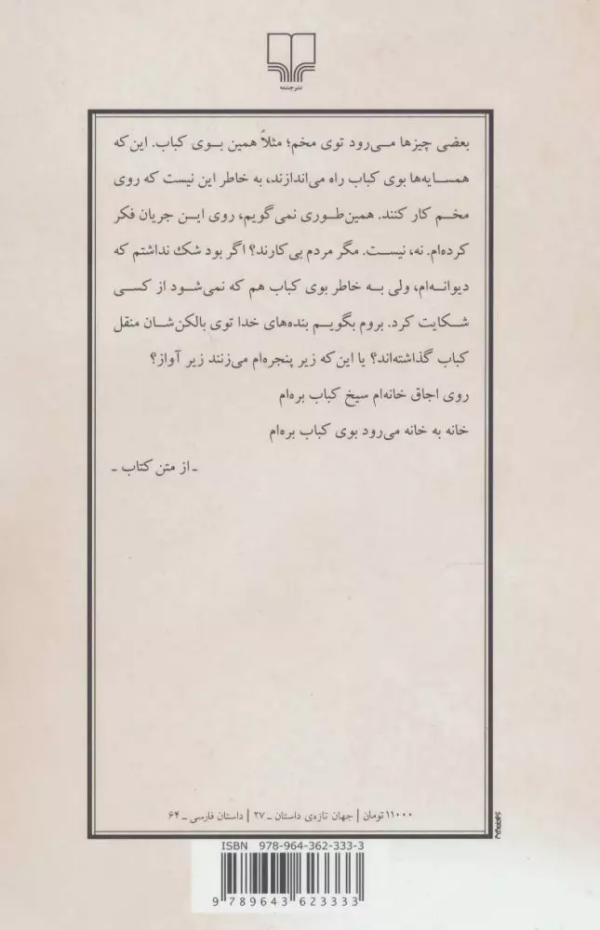 نشرچشمه
بعضی چیزها می‌رود توی مخم؛ مثلاً همین بوی کباب. این‌که
همسایه‌ها بوی کباب راه می‌اندازند، به خاطر این نیست که روی
مخم کار کنند. همین‌طوری نمی‌گویم، روی این جریان فکر
کرده‌ام. نه، نیست. مگر مردم بی‌کارند؟ اگر بود شک نداشتم که
دیوانه‌ام، ولی به خاطر بوی کباب هم که نمی‌شود از کسی
شکایت کرد. بروم بگویم بنده‌های خدا توی بالکن‌شان منقل
کباب گذاشته‌اند؟ یا این‌که زیر پنجره‌ام می‌زنند زیر آواز؟
روی اجاق خانه‌ام سیخ کباب بره‌ام
خانه به خانه می‌رود بوی کباب بره‌ام
ـ از متن کتاب ـ
۱۱۰۰۰ تومان | جهان تازه‌ی داستان ـ ۲۷ | داستان فارسی ـ ۶۴
ISBN 978-964-362-333-3
9 789643 623333